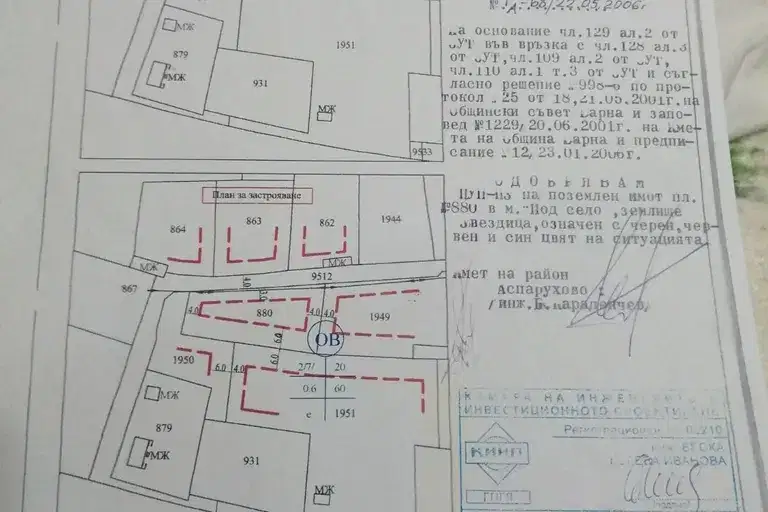 879
МЖ
МЖ
1951
931
МЖ
9533
на основание чл.129 ал.2 от
ЗУТ във връзка с чл.128 ал.3
от ЗУТ,чл.109 ал.2 от ЗУТ,
чл.110 ал.1 т.3 от ЗУТ и съг-
ласно решение 998-6 по про-
токол 25 от 18,21.05.2001г.на
Общински съвет Варна и запо-
вед №1229/20.06.2001г. на Кме-
та на Община Варна и предпи-
сание 12/23.01.2006г.
ОДОБРЯВАМ
на поземлен имот пл.
№880 в м."Под село ,землище
Звездица,означен с черен,чер-
вен и син цвят на ситуацията
Кмет на район
Аспарухово :
/инж.Б.
План за застрояване
864
863
862
1944
МЖ
МЖ
867
9512
4.0
3.0
4.0
880
4.0
4.0
1949
6.0
6.0
ОВ
1950
6.0
4.0
2/7/
20
0.6
60
е
1951
МЖ
879
МЖ
931
МЖ
КАМАРА НА ИНЖЕНЕРИТЕ В
ИНВЕСТИЦИОННОТО ПРОЕКТИРАНЕ
КИИП
ИВАНОВА